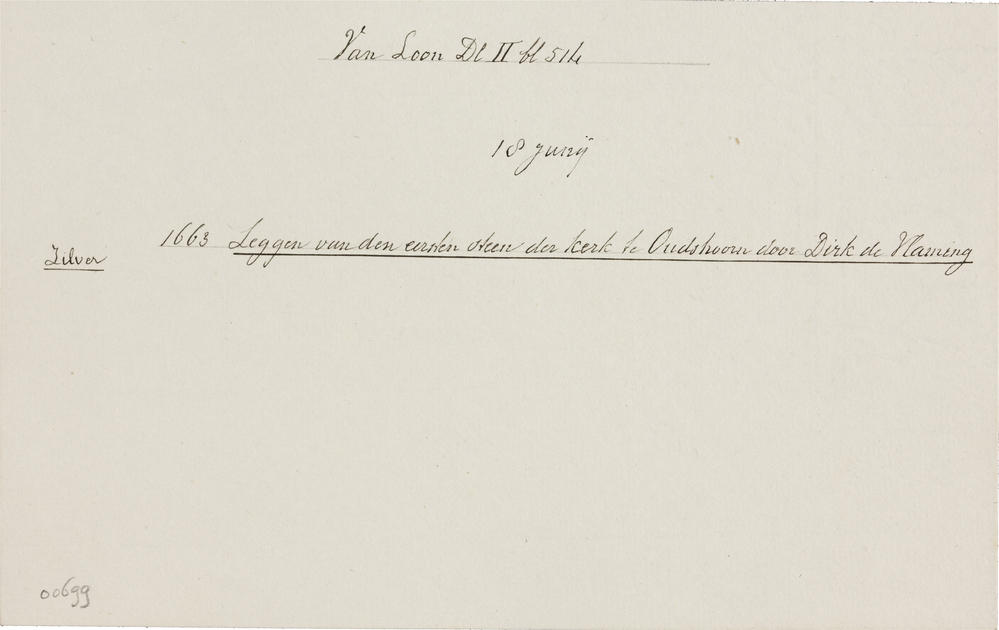 Van Loon Dl II bl 514
18 Junij
1663 Leggen van den eersten steen der kerk te Oudshoorn door Dirk de Vlaming
Zilver
00699